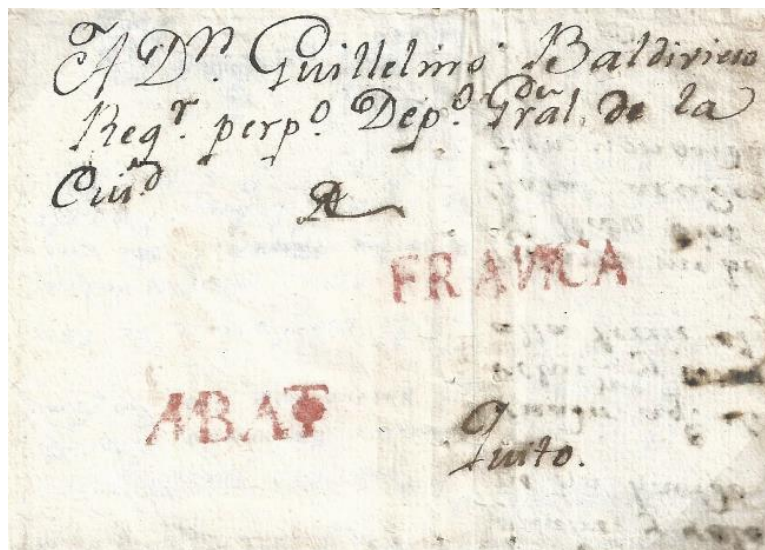 A Dn. Guillelmo Baldivieso
Regr. perpo. Depo. Gral. de la
Ciud
FRANCA
ABAT
Quito.